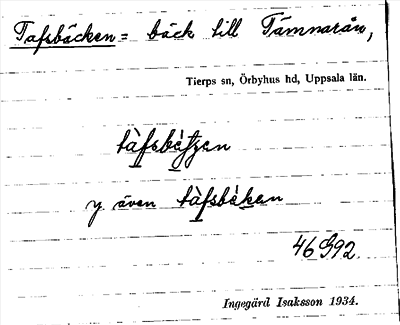 Tafsbäcken = bäck till Tämnarån,
Tierps sn, Örbyhus hd, Uppsala län.
tàfsbètʃen
y. även tàfsbèken
46 G92.
Ingegärd Isaksson 1934.